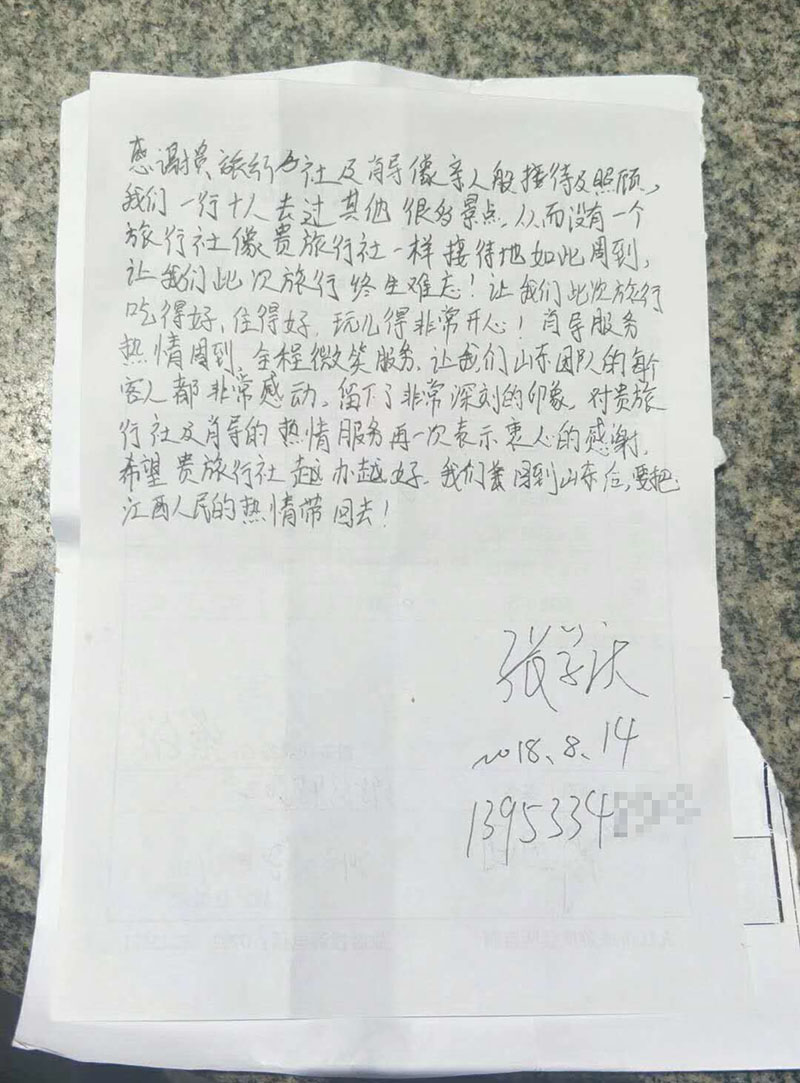 感谢贵旅行社及肖导像亲人般接待及照顾,
我们一行十人去过其他很多景点,从而没有一个
旅行社像贵旅行社一样接待地如此周到,
让我们此次旅行终生难忘!让我们此次旅行
吃得好、住得好、玩儿得非常开心!肖导服务
热情周到,全程微笑服务、让我们山东团队的每个
客人都非常感动,留下了非常深刻的印象,对贵旅
行社及肖导的热情服务再一次表示衷心的感谢,
希望贵旅行社越办越好,我们回到山东后,要把
江西人民的热情带回去!
张学庆
2018、8、14
1395334